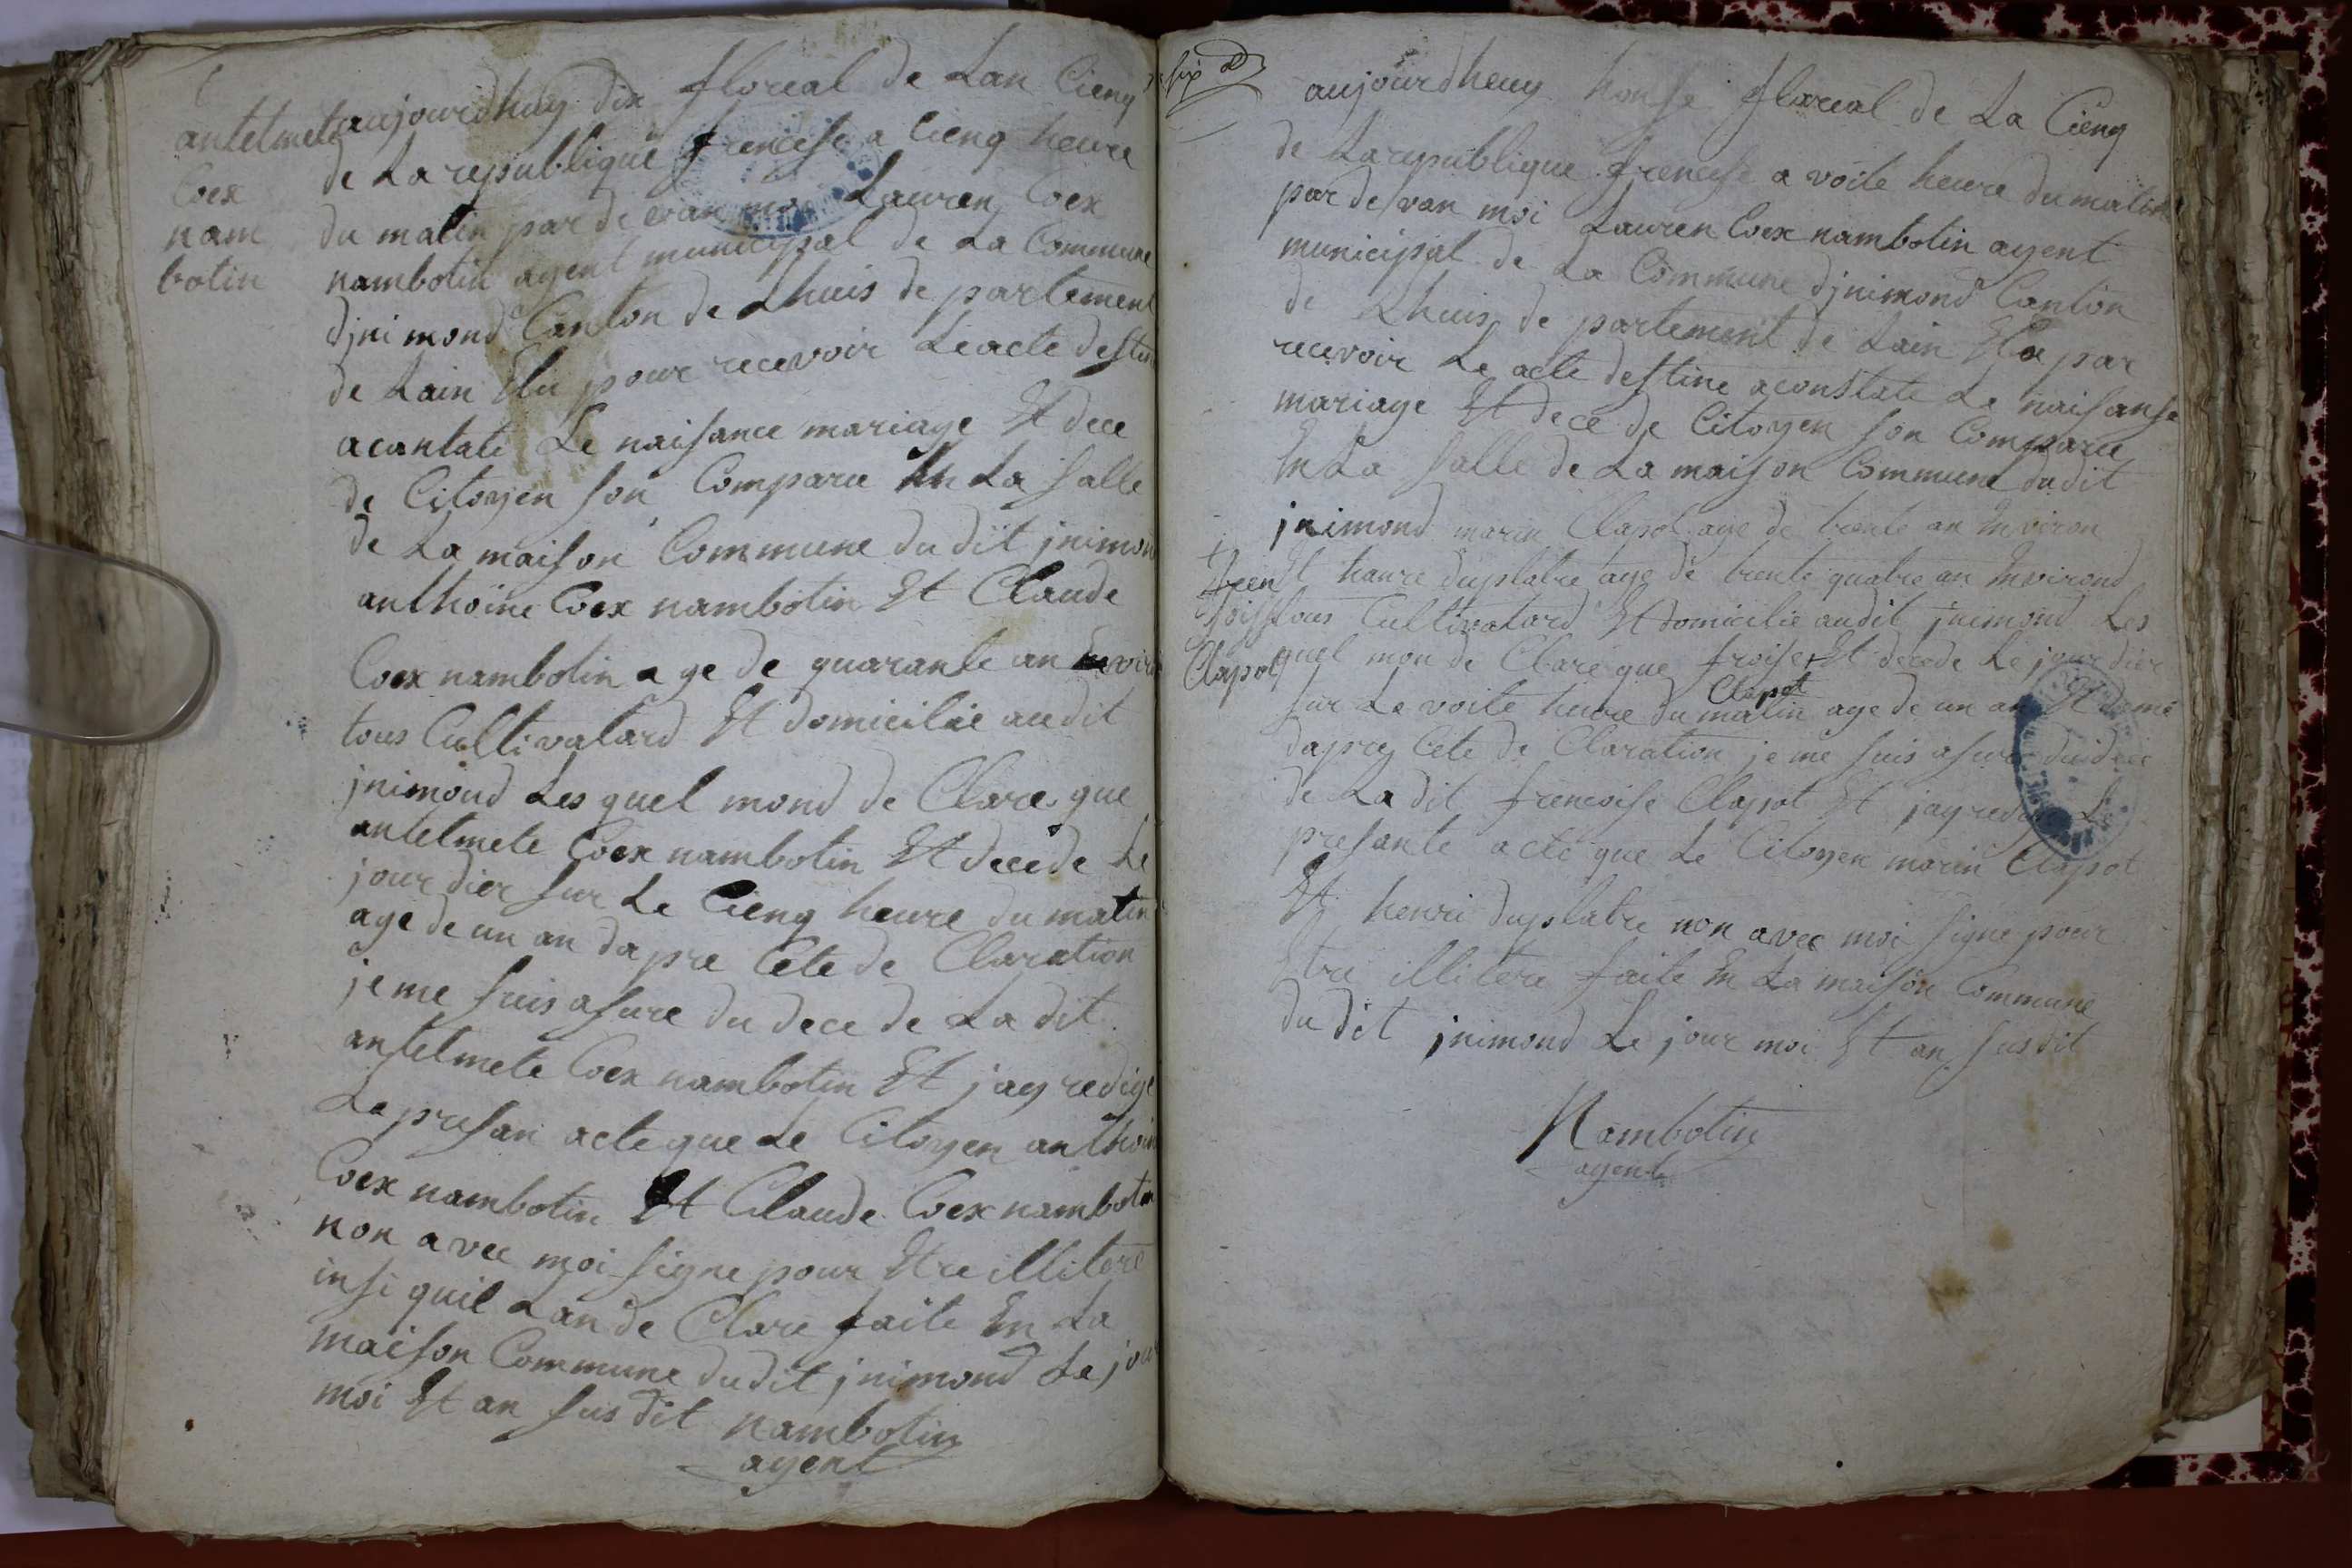 antelmete
Coex
nam
botin
aujourdhuy dix floreal de Lan Cienq
de La republique frencese a Cienq heure
du matin par de evan moi Lauren Coex
nambotin agent municipal de La Commune
djnimond Canton de Lhuis de partement
de Lain Elu pour recevoir Le acte destin
acantate Le naisance mariage Et dece
de Citoyen son Comparu En La salle
de La maison Commune du dit jnimon
anthoine Coex nambotin Et Claude
Coex nambotin age de quarante an Enviro
tous Cultivatard Et domicilie audit
jnimond Les quel mond de Clare que
antelmete Coex nambotin Et decede Le
jour dier sur Le Cienq heure du matin
age de un an dapre Cete de Claration
je me suis asure du dece de La dit
antelmete Coex nambotin Et jay redige
Le presan acte que Le Citoyen anthoin
Coex nambotin Et Claude Coex nambotin
non avec moi signe pour Etre illitere
insi quil Lan de Clare faite En La
maison Commune du dit jnimond Le jour
moi Et an sus dit nambotin
agent
six
aujourdheuy honse floreal de La Cienq
de La republique frencese a voite heure du matin
par de van moi Lauren Coex nambotin agent
municipal de La Commune djnimond Canton
de Lhuis de partement de Lain Elu par
recevoir Le acte destine aconstate Le naisanse
mariage Et dece de Citoyen son Comparu
En La salle de La maison Commune du dit
jnimond marin Clapot age de trente an Environ
Et haure duplatre age de trente quatre an Environd
tous Cultivatard Et domicilie audit jnimond Les
quel mon de Clare que froise + Et decede Le jour dier
Clapot
sur Le voite heure du matin age de un an Et deme
dapres Cete de Claration je me suis asure du dece
de La dit frencoise Clapot Et jay redige Le
presante acte que Le Citoyen marin Clapot
Et henri duplatre non avec moi signe pour
Etre illitere faite En La maison Commune
du dit jnimond Le jour moi Et an sus dit
Nambotin
agent
fren
soise
Clapot